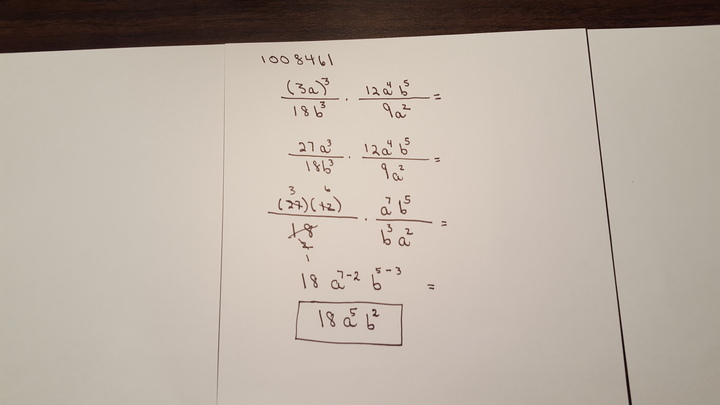 1008461
(3a)^3 / 18b^3 · 12a^4 b^5 / 9a^2 =
27a^3 / 18b^3 · 12a^4 b^5 / 9a^2 =
3 6
(27)(12) / 18 · a^7 b^5 / b^3 a^2 =
2
1
18 a^7-2 b^5-3 =
18 a^5 b^2